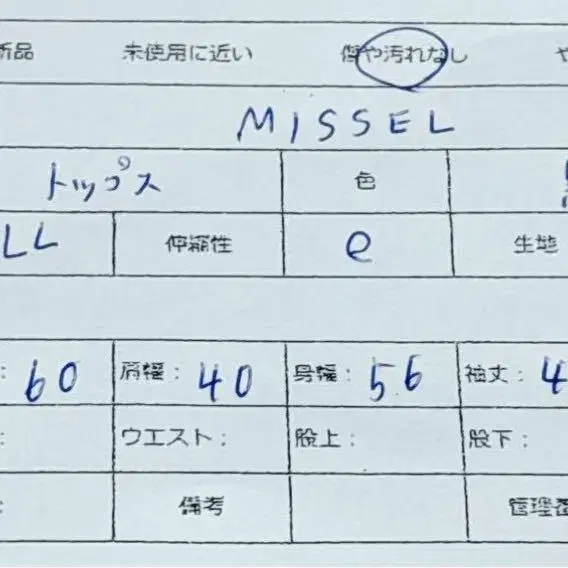 新品 未使用に近い 傷や汚れなし や
MISSEL
トップス 色
LL 伸縮性 e 生地
: 60 肩幅: 40 身幅: 56 袖丈: 4
: ウエスト: 股上: 股下:
: 備考 管理番